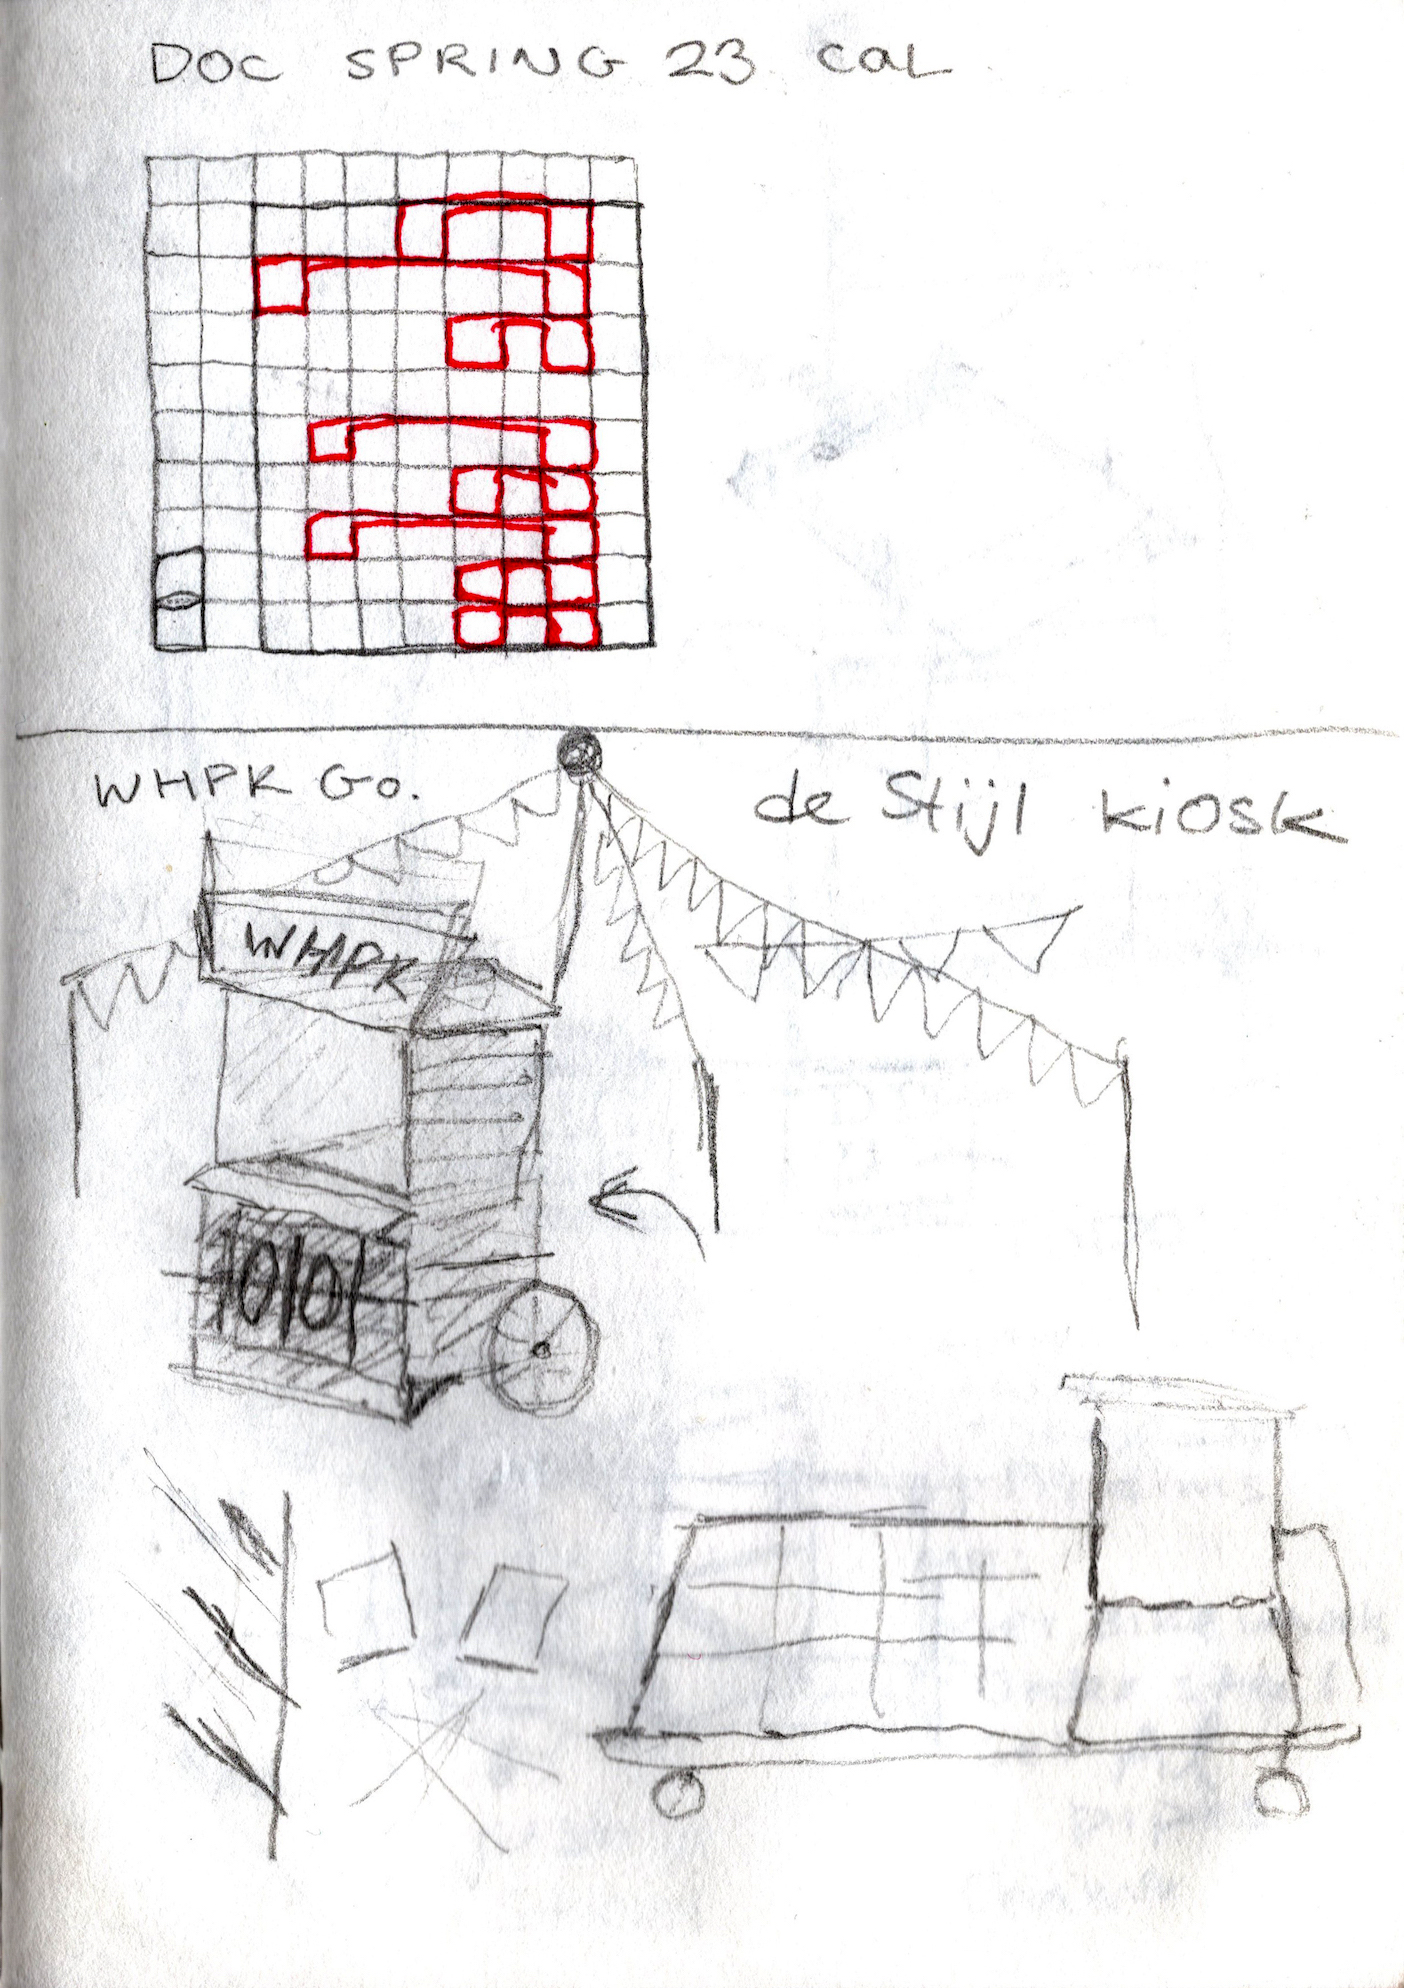 DOC SPRING 23 CAL
WHPK GO.
de Stijl kiosk
WHPK
10101